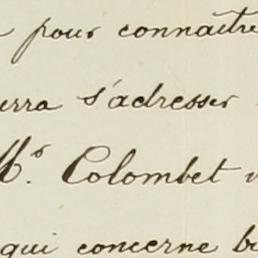 pour connaître
s'adresser
Mr. Colombet
qui concerne